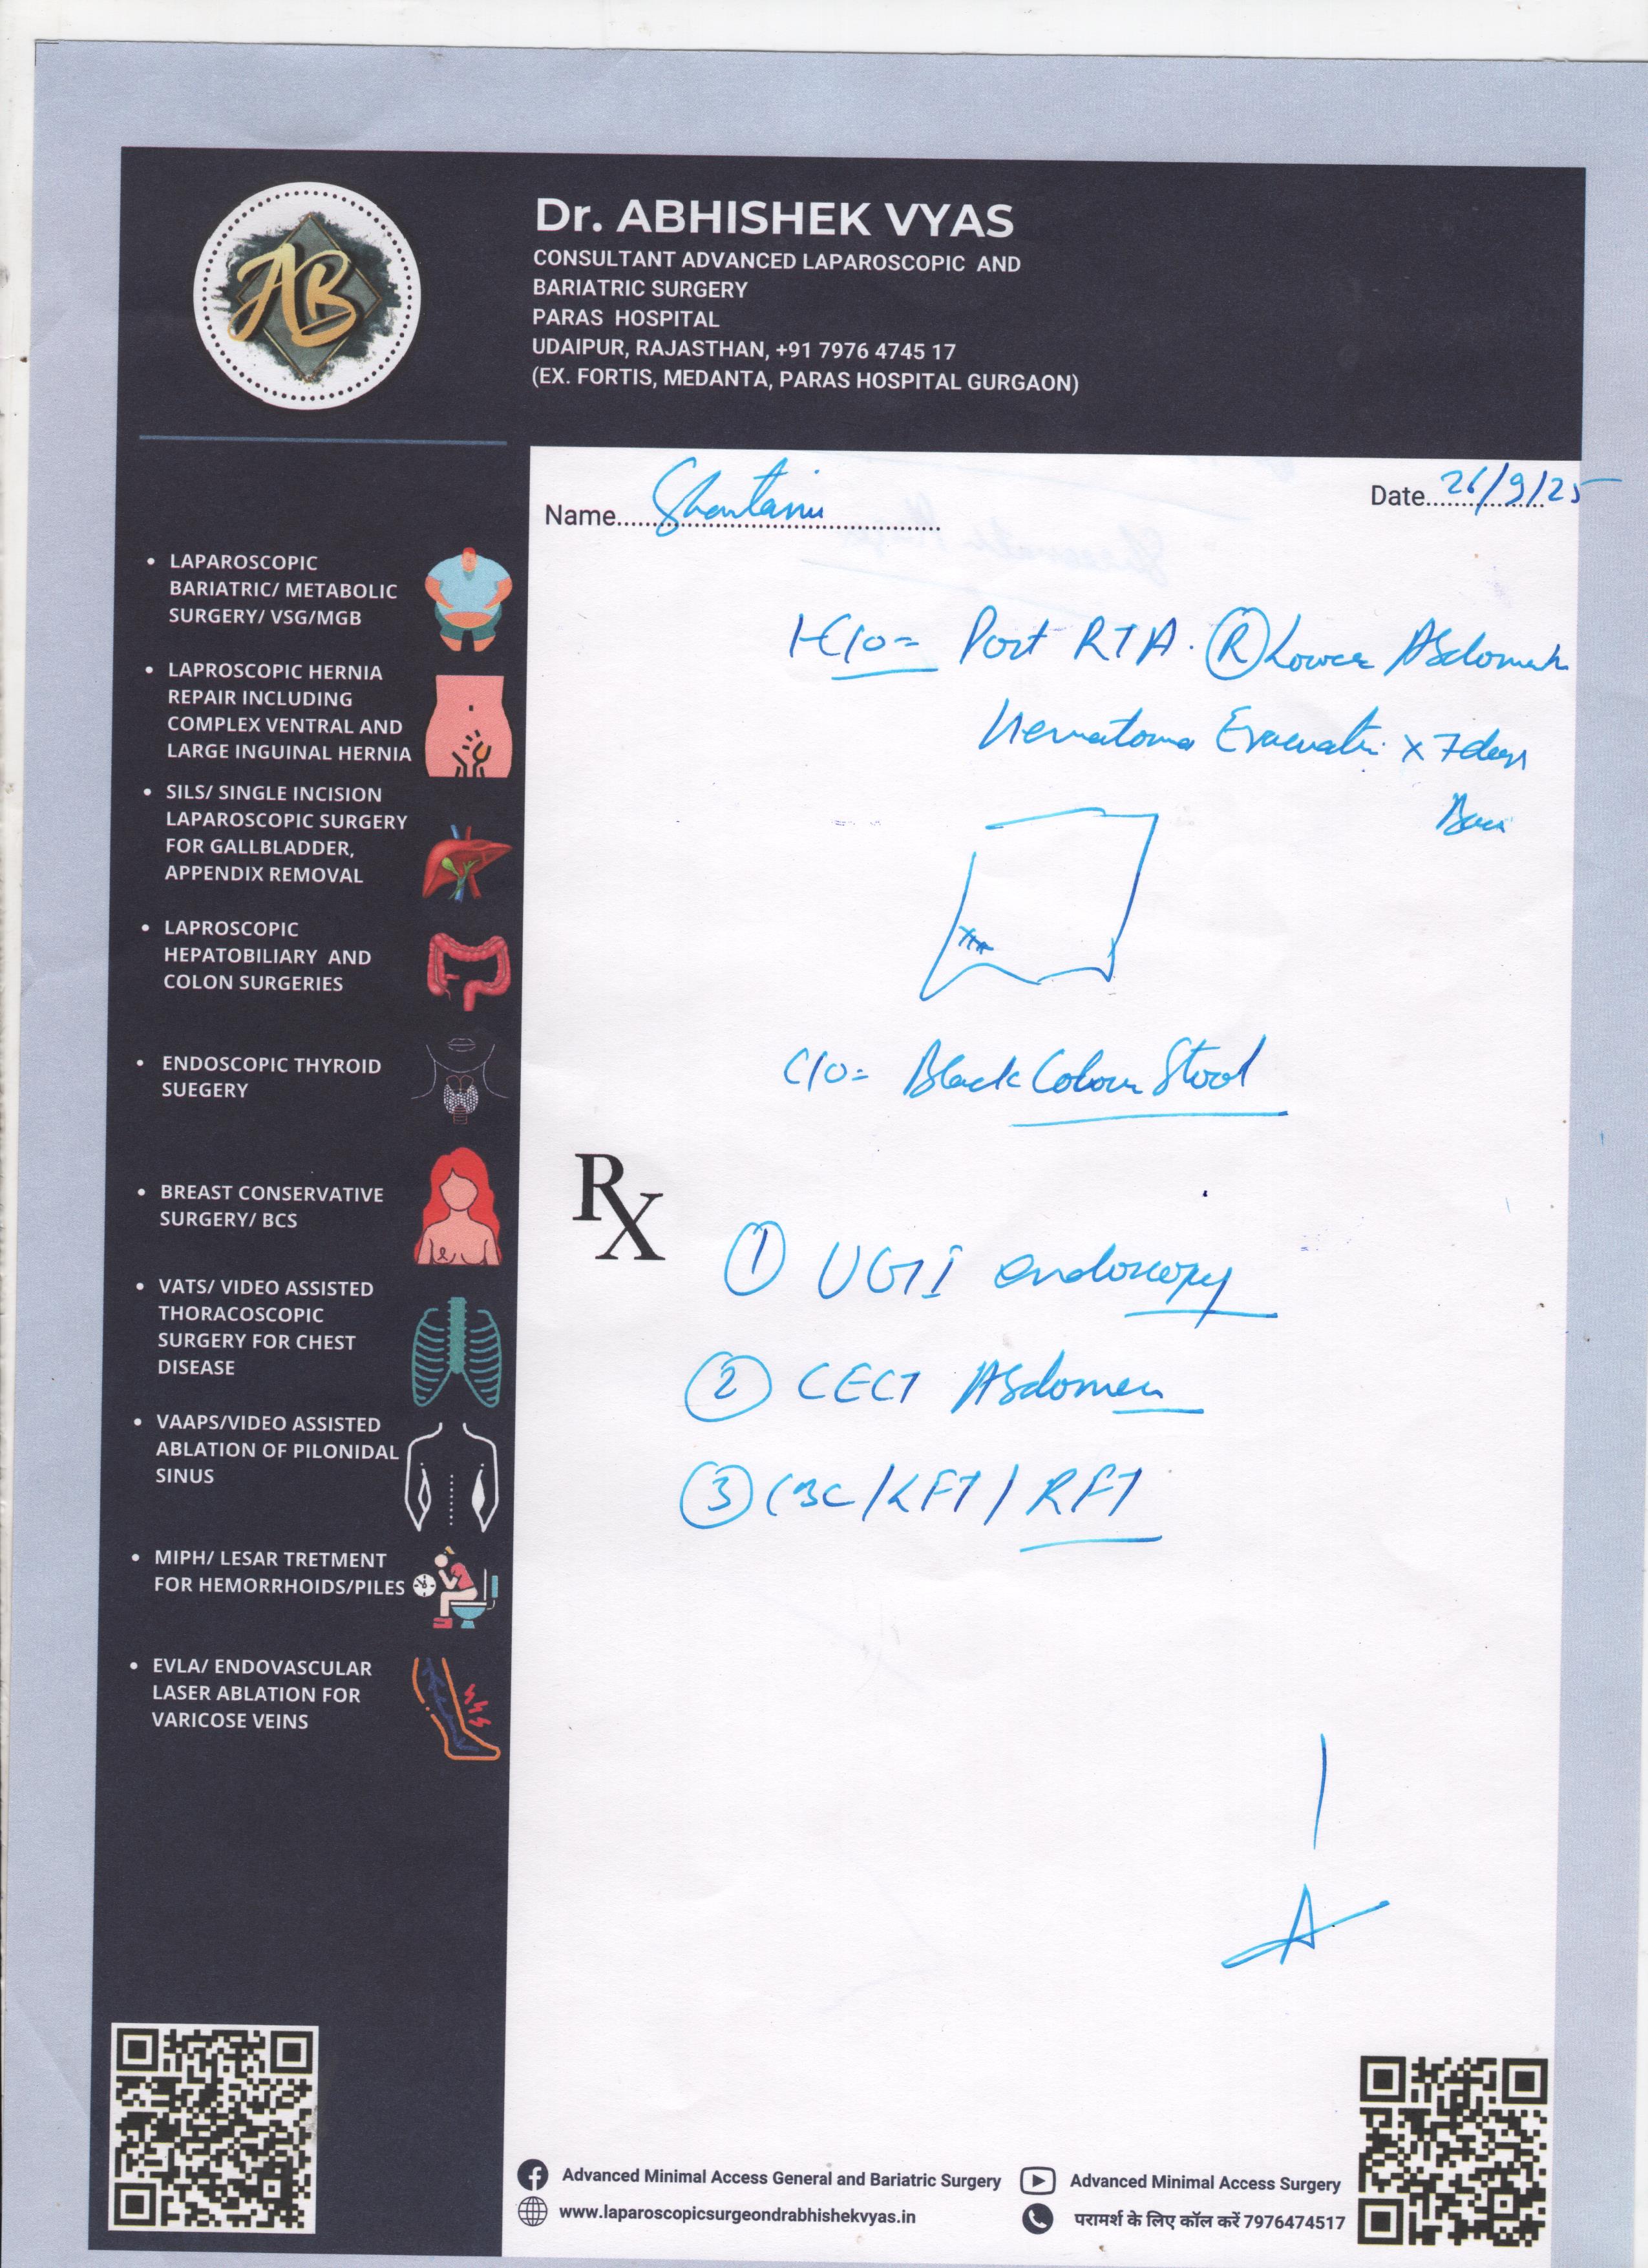 AB
Dr. ABHISHEK VYAS
CONSULTANT ADVANCED LAPAROSCOPIC AND
BARIATRIC SURGERY
PARAS HOSPITAL
UDAIPUR, RAJASTHAN, +91 7976 4745 17
(EX. FORTIS, MEDANTA, PARAS HOSPITAL GURGAON)
Name Shantanu
Date 26/9/25
• LAPAROSCOPIC
BARIATRIC/ METABOLIC
SURGERY/ VSG/MGB
• LAPROSCOPIC HERNIA
REPAIR INCLUDING
COMPLEX VENTRAL AND
LARGE INGUINAL HERNIA
• SILS/ SINGLE INCISION
LAPAROSCOPIC SURGERY
FOR GALLBLADDER,
APPENDIX REMOVAL
• LAPROSCOPIC
HEPATOBILIARY AND
COLON SURGERIES
• ENDOSCOPIC THYROID
SUEGERY
• BREAST CONSERVATIVE
SURGERY/ BCS
• VATS/ VIDEO ASSISTED
THORACOSCOPIC
SURGERY FOR CHEST
DISEASE
• VAAPS/VIDEO ASSISTED
ABLATION OF PILONIDAL
SINUS
• MIPH/ LESAR TRETMENT
FOR HEMORRHOIDS/PILES
• EVLA/ ENDOVASCULAR
LASER ABLATION FOR
VARICOSE VEINS
H/O= Post RTA. (R) Lower Abdomen
Hematoma Evacuatn x 7days
C/O= Black Colour Stool
Rx
① UGI endoscopy
② CECT Abdomen
③ CBC/KFT/RFT
Advanced Minimal Access General and Bariatric Surgery
Advanced Minimal Access Surgery
www.laparoscopicsurgeondrabhishekvyas.in
परामर्श के लिए कॉल करें 7976474517